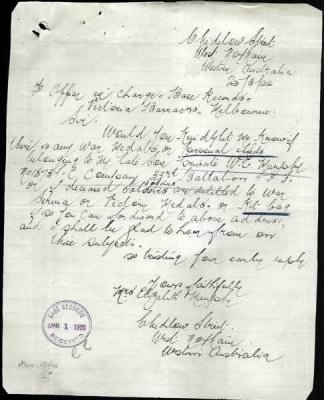 Chidlow Street
West Northam
Western Australia
To Officer in Charge. Base Records.
Victoria Barracks. Melbourne.
Sir.
Would you Kindly let me Know if
their is any War Medals or personal effects
belonging to my late Son Private W.C.
C Company Battalion A.I.F.
or if deceased Soldiers are entitled to War
Service or Victory Medals. or Kit bag
if so you can forward to above address
and I shall be glad to hear from on
these subjects.
so trusting your early reply
Yours faithfully
Mrs Elizabeth
Chidlow Street.
West Northam.
Western Australia
BASE RECORDS
APR 1 1920
RECEIVED